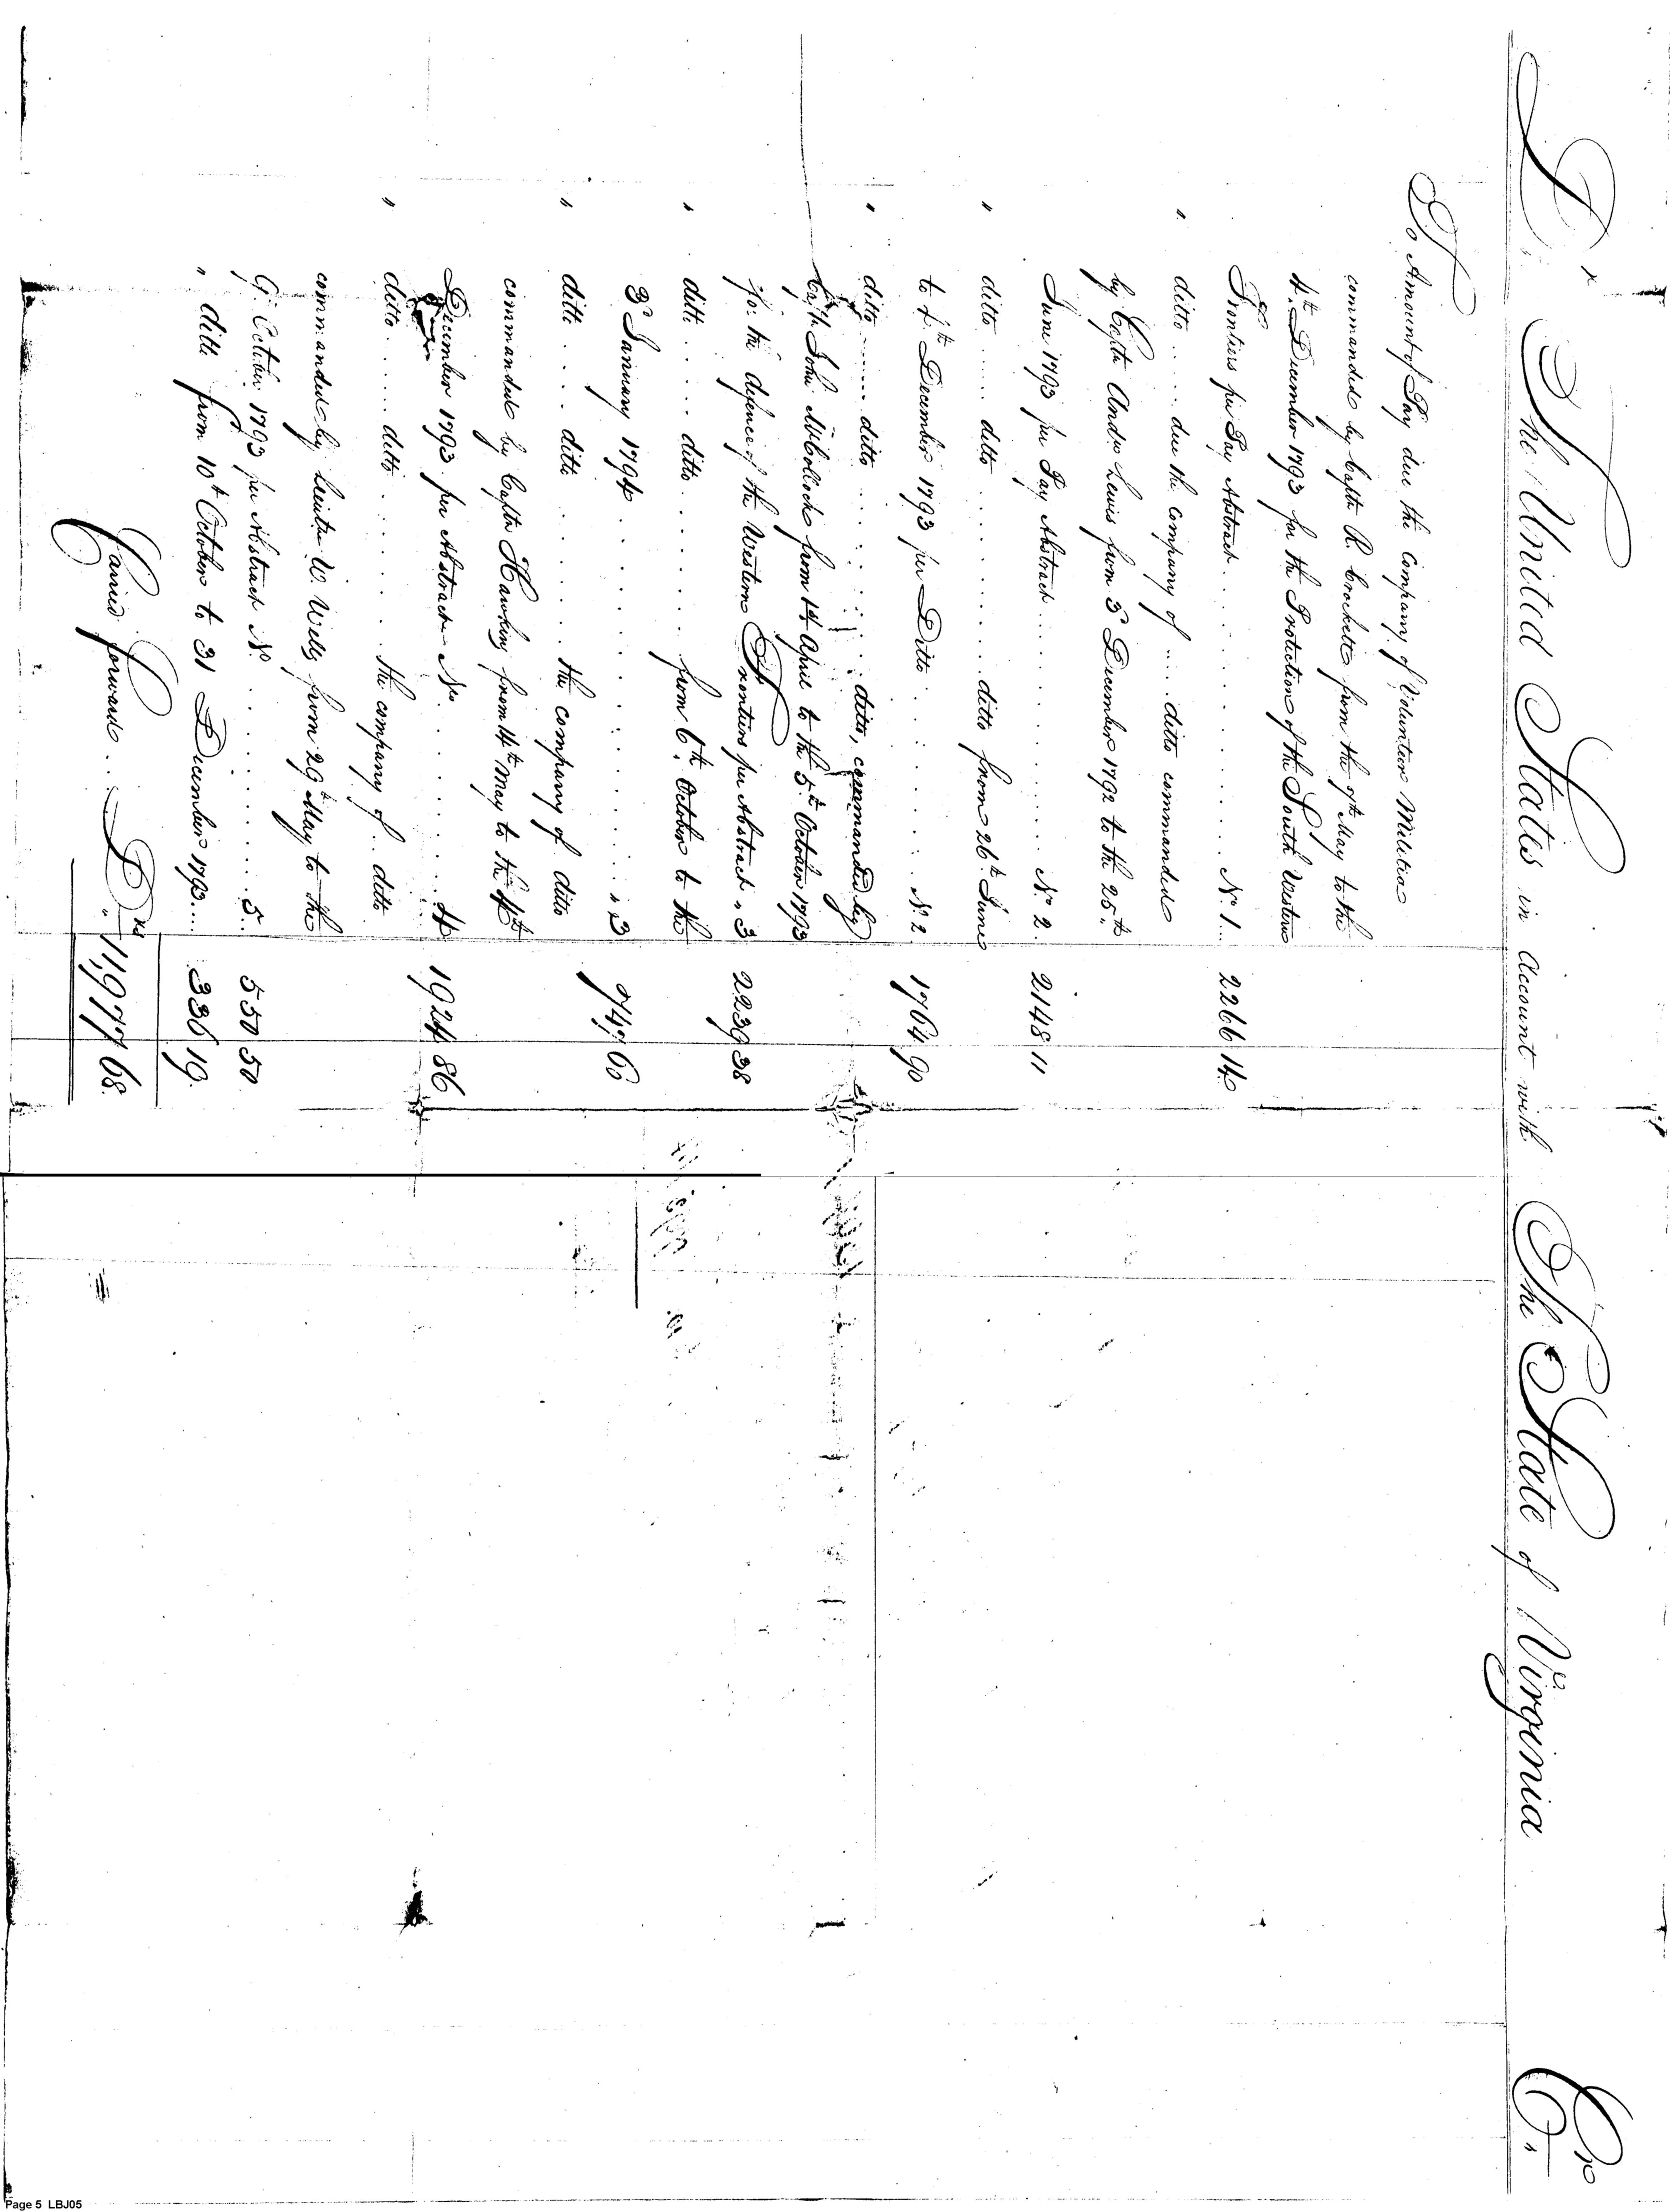 Dr. The United States in Account with The State of Virginia Cr.
To Amount of Pay due the Company of Volunteer Militia
commanded by Captn R. Crockett from the 7th May to the
4th December 1793 for the Protection of the South Western
Frontiers per Pay Abstract . . . . . . . . No. 1 . . 2266 14
" ditto . . . . due the company of . . . . ditto commanded
by Captn Andw Lewis from 3d December 1792 to the 25th
June 1793 per Pay Abstract . . . . . . . . No. 2 . 2148 11
" ditto . . . . ditto . . . . . . . . ditto from 26th June
to 4th December 1793 per Ditto . . . . . . . . No. 2 . 1764 90
" ditto . . . . ditto . . . . . . . . ditto, commanded by
Captn John McColloch from 1st April to the 5th October 1793
for the defence of the Western Frontiers per Abstract " 3 2239 38
" ditto . . . . ditto . . . . . . from 6th October to the
3d January 1794 . . . . . . . . . . . . " 3 747 60
" ditto . . . ditto . . . . . . the company of ditto
commanded by Captn Hawkins from 14th May to the 4th
December 1793 per Abstract No. . . . . . . 4 1924 86
" ditto . . . . . ditto . . . . . . the company of . . ditto
commanded by Lieutn W. Wells from 29th May to the
9th October 1793 per Abstract No. . . . . . . . . 5. 550 50
" ditto from 10th October to 31 December 1793 . . . . 336 19.
Carried forward . . . Drs " 11,977 68.
Page 5 LBJ05